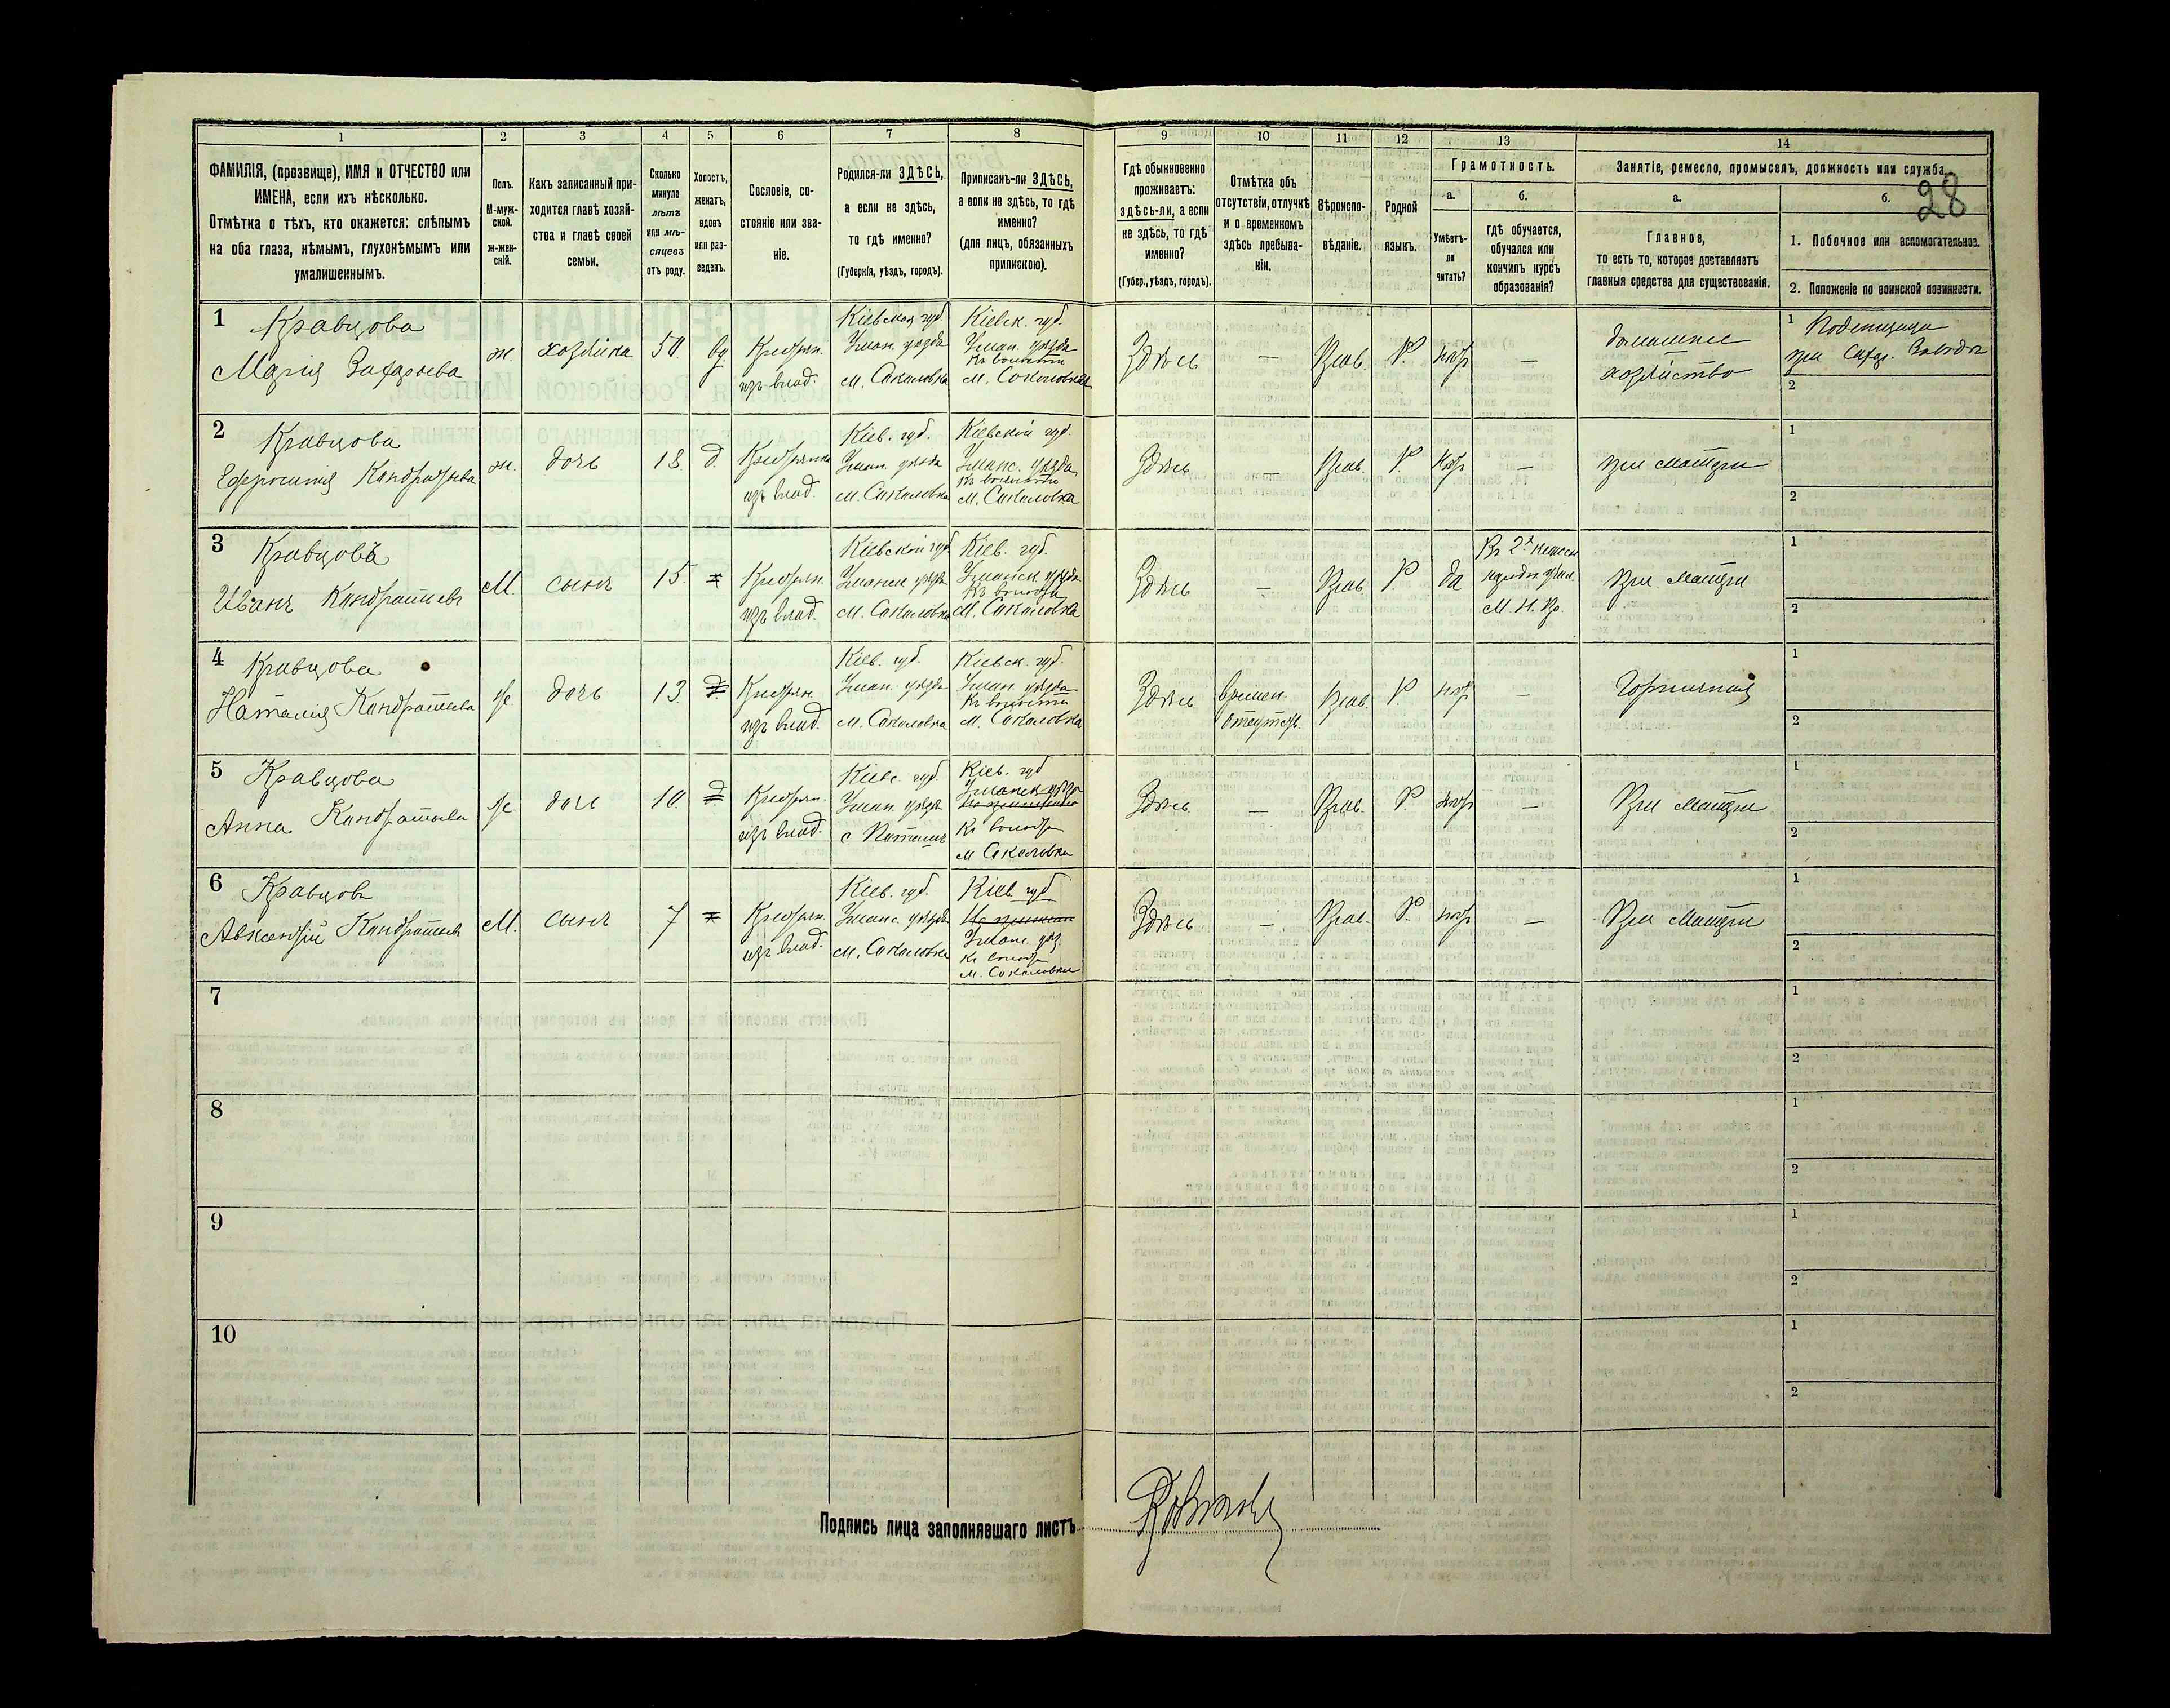 28
1
2
3
4
5
6
7
8
9
10
11
12
13
14
ФАМИЛІЯ, (прозвище), ИМЯ и ОТЧЕСТВО или
ИМЕНА, если ихъ нѣсколько.
Отмѣтка о тѣхъ, кто окажется: слѣпымъ
на оба глаза, нѣмымъ, глухонѣмымъ или
умалишеннымъ.
Полъ.
М-муж-
ской.
ж-жен-
скій.
Какъ записанный при-
ходится главѣ хозяй-
ства и главѣ своей
семьи.
Сколько
минуло
лѣтъ
или мѣ-
сяцевъ
отъ роду.
Холостъ,
женатъ,
вдовъ
или раз-
веденъ.
Сословіе, со-
стояніе или зва-
ніе.
Родился-ли ЗДѢСЬ,
а если не здѣсь,
то гдѣ именно?
(Губернія, уѣздъ, городъ).
Приписанъ-ли ЗДѢСЬ,
а если не здѣсь, то гдѣ
именно?
(для лицъ, обязанныхъ
припискою).
Гдѣ обыкновенно
проживаетъ:
здѣсь-ли, а если
не здѣсь, то гдѣ
именно?
(Губер., уѣздъ, городъ).
Отмѣтка объ
отсутствіи, отлучкѣ
и о временномъ
здѣсь пребыва-
ніи.
Вѣроиспо-
вѣданіе.
Родной
языкъ.
Грамотность.
а.
Умѣетъ-
ли
читать?
б.
гдѣ обучается,
обучался или
кончилъ курсъ
образованія?
Занятіе, ремесло, промыселъ, должность или служба.
а.
Главное,
то есть то, которое доставляетъ
главныя средства для существованія.
б.
1. Побочное или вспомогательное.
2. Положеніе по воинской повинности.
1
Кравцова
Марія Захарьева
ж.
хозяйка
50.
вд
Крестьян.
изъ влад.
Кіевская губ.
Уман. уѣзда
м. Соколовка
Кіевск. губ.
Уман. уѣзда
къ волости
м. Соколовка
Здѣсь
—
Прав.
Р.
нѣт
—
домашнее
хозяйство
1 Поденщица
при Сахар. Заводѣ
2
2
Кравцова
Ефросинія Кондратьева
ж.
дочь
18.
д.
Крестьянка
изъ влад.
Кіев. губ.
Уман. уѣзда
м. Соколовка
Кіевской губ.
Уманс. уѣзда
къ волости
м. Соколовка
Здѣсь
—
Прав.
Р.
нѣт
—
при матери
1
2
3
Кравцовъ
Иванъ Кондратьевъ
М.
сынъ
15.
Крестьян.
изъ влад.
Кіевской губ
Уманск уѣзда
м. Соколовка
Кіев. губ.
Уманск уѣзда
къ волости
м. Соколовка
Здѣсь
—
Прав
Р.
да
М. Н. Пр.
При матери
1
2
4
Кравцова
Наталія Кондратьева
ж
дочь
13.
Крестьян
изъ влад.
Кіев. губ.
Уман. уѣзда
м. Соколовка
Кіевск. губ.
Уман уѣзда
къ волости
м. Соколовка
Здѣсь
времен.
отсутств.
Прав.
Р
нѣт
—
Горничная
1
2
5
Кравцова
Анна Кондратьева
ж
дочь
10.
Крестьян.
изъ влад.
Кіевс. губ.
Уман. уѣзда
Кіев. губ
Уманск уѣзд
къ волости
м Соколовка
Здѣсь
—
Прав.
Р.
нѣт
—
При матери
1
2
6
Кравцовъ
Авксентій Кондратьевъ
М.
сынъ
7
Крестьян.
изъ влад.
Кіев. губ.
Уманс. уѣзда
м. Соколовка
Кіев губ
Уманс. уѣз.
къ волости
м. Соколовка
Здѣсь
—
Прав.
Р.
нѣт
—
При матери
1
2
7
1
2
8
1
2
9
1
2
10
1
2
Подпись лица заполнявшаго листъ